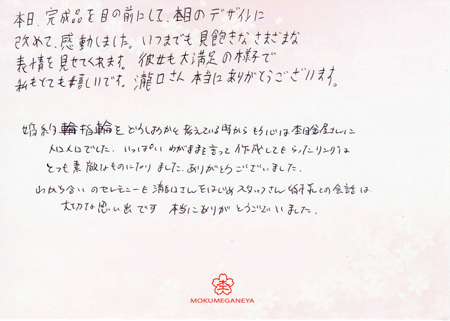 本日、完成品を目の前にして、木目のデザインに
改めて、感動しました。いつまでも見飽きなさまざまな
表情を見せてくれます。彼女も大満足の様子で
私もとても嬉しいです。瀧口さん本当にありがとうございます。
婚約指輪をどうしようかと考えている時から もう心は杢目金屋さんに
メロメロでした。いっぱいわがままを言って作成してもらったリングは
とっても素敵なものになりました。ありがとうございました。
わかちあいのセレモニーも瀧口さんをはじめスタッフさん 皆さまとの会話は
大切な思い出です 本当にありがとうございました。
MOKUMEGANEYA